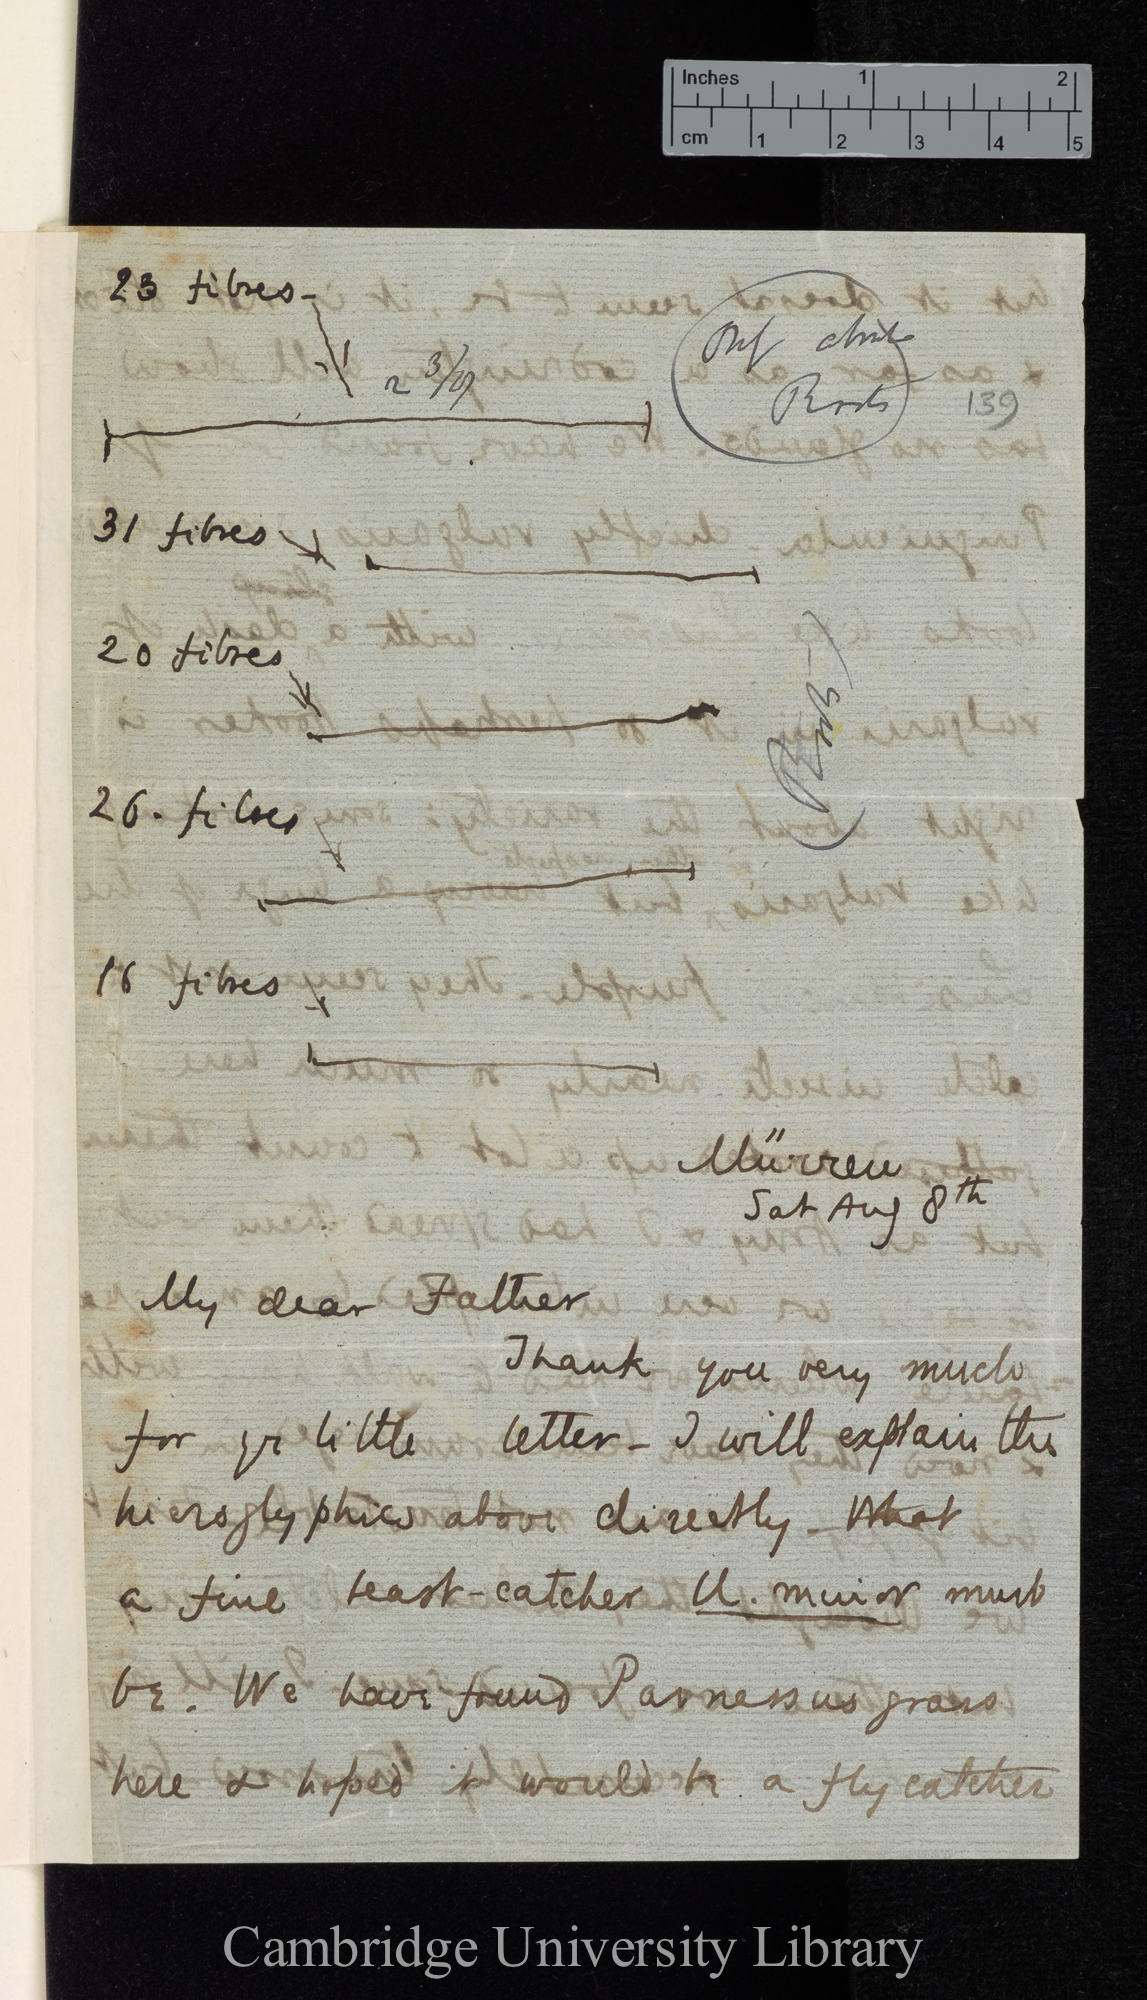 Inches 1 2
cm 1 2 3 4 5
23 fibres-
2 3/4
Roots
139
31 fibres
20 fibres
(Roots-)
26. fibres
16 fibres
Mürren
Sat Aug 8th
My dear Father
Thank you very much
for yr little letter- I will explain the
hieroglyphics above directly- What
a fine beast-catcher U. minor must
be. We have found Parnassus grass
here & hoped it would be a fly catcher
Cambridge University Library